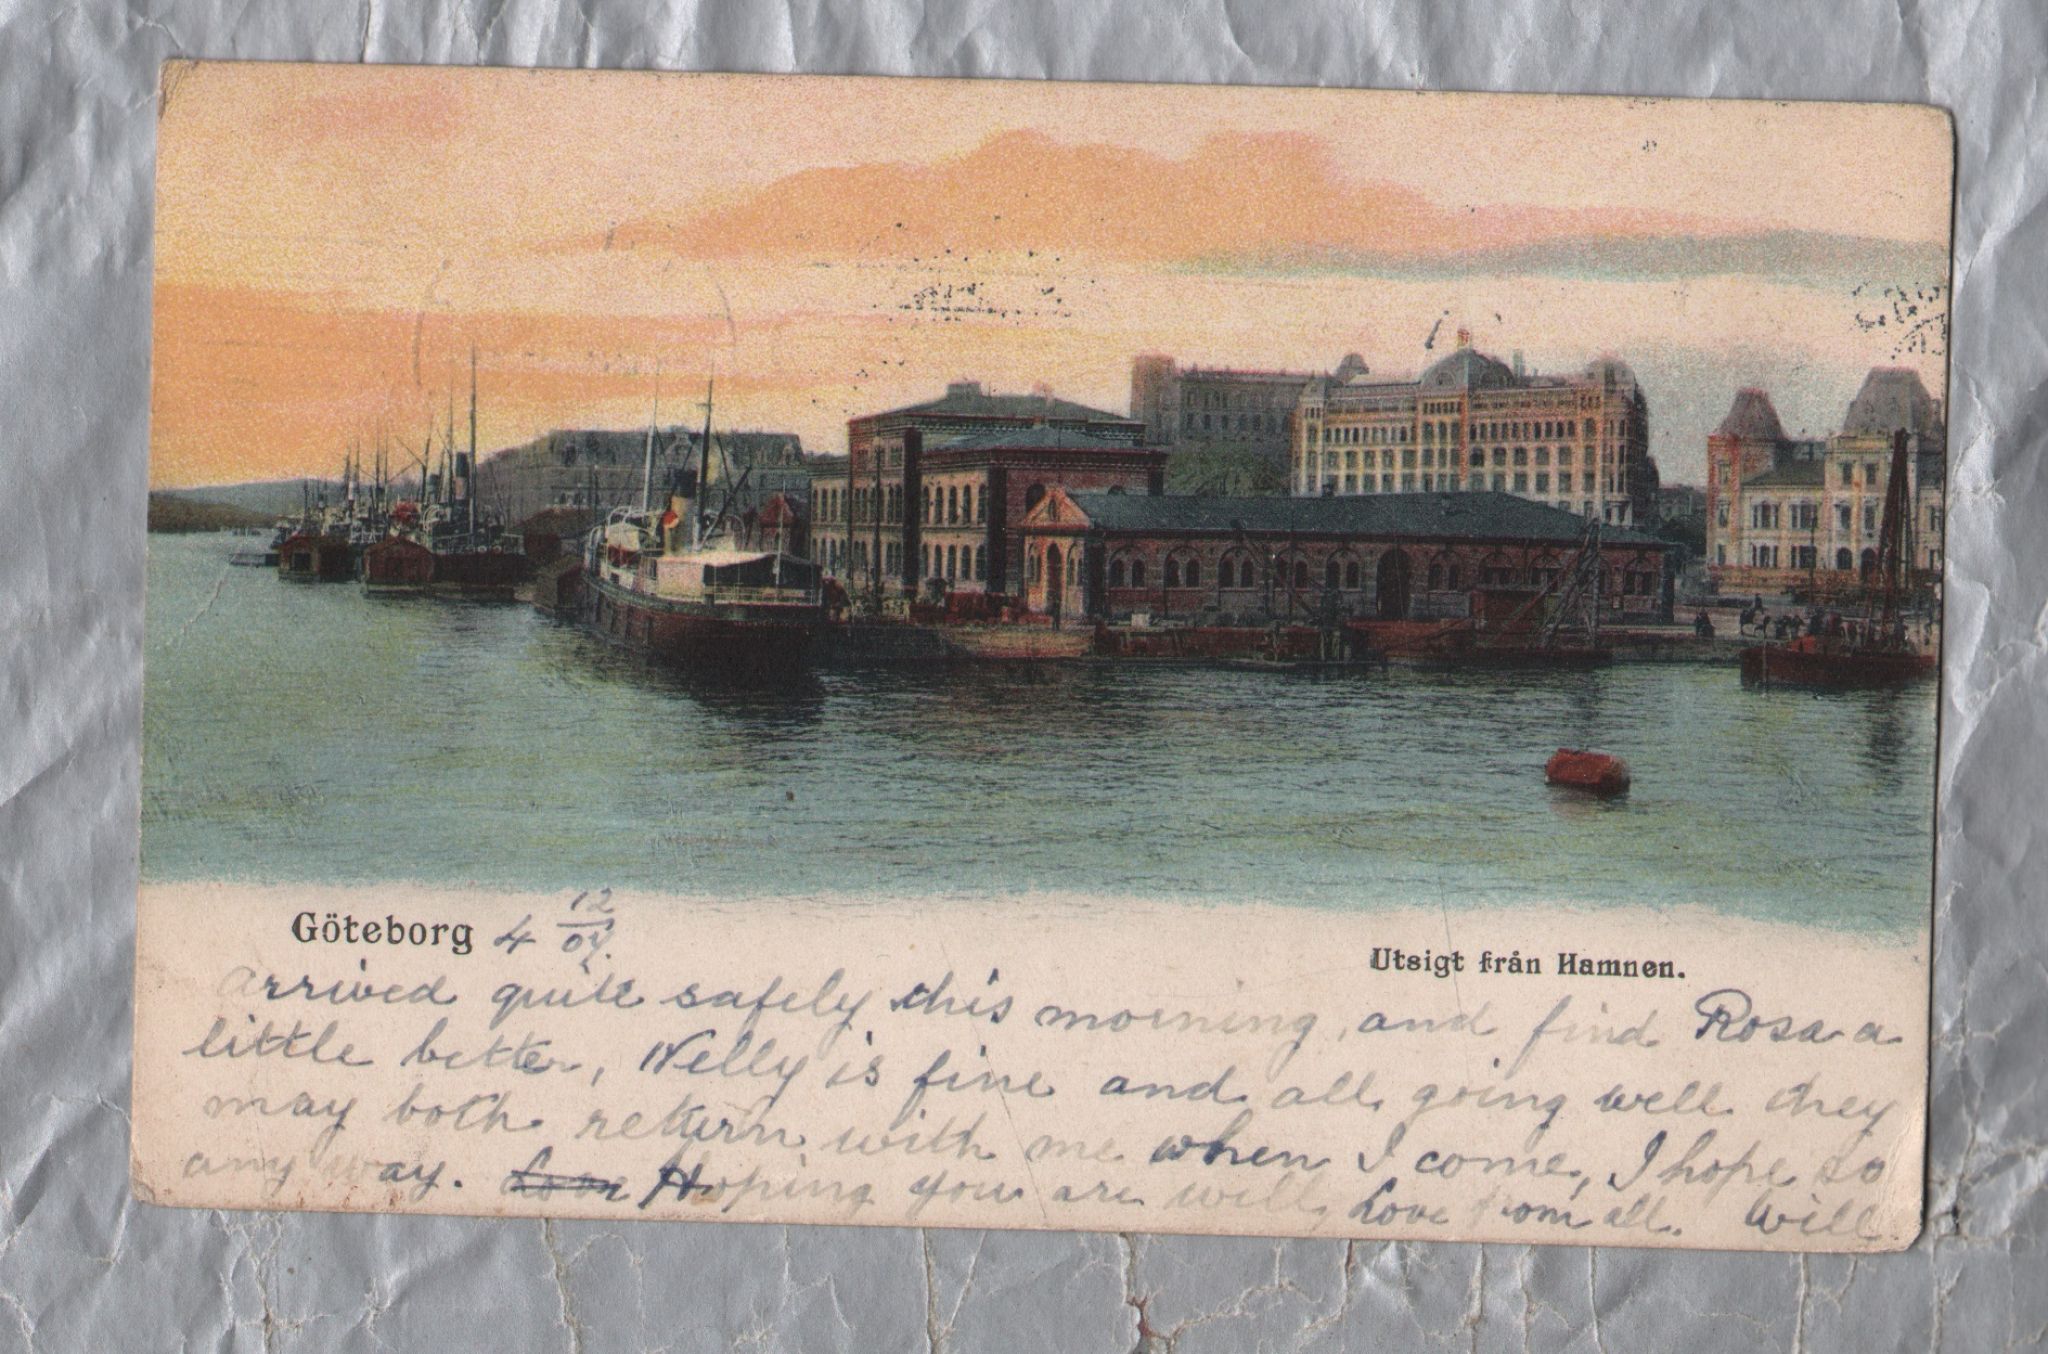 Göteborg 4 12/04.
Utsigt från Hamnen.
arrived quite safely this morning, and find Rosa a
little better, Nelly is fine and all going well they
may both return with me when I come, I hope so
any way. Hoping you are well, Love from all. Will